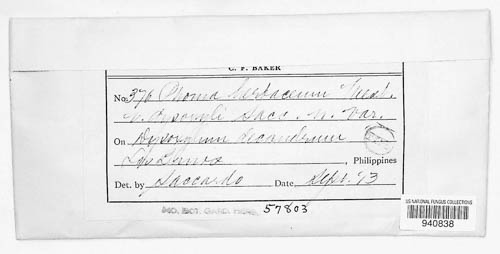 C. F. BAKER
No. 376 Phoma herbaceum West.
v. dysoxyli Sacc. n. var.
On Dysoxylum decandrum
Los Banos, Philippines
Det. by Saccardo Date, Sept. '13
MO. BOT. GARD. HERB. 57803
US NATIONAL FUNGUS COLLECTIONS
940838